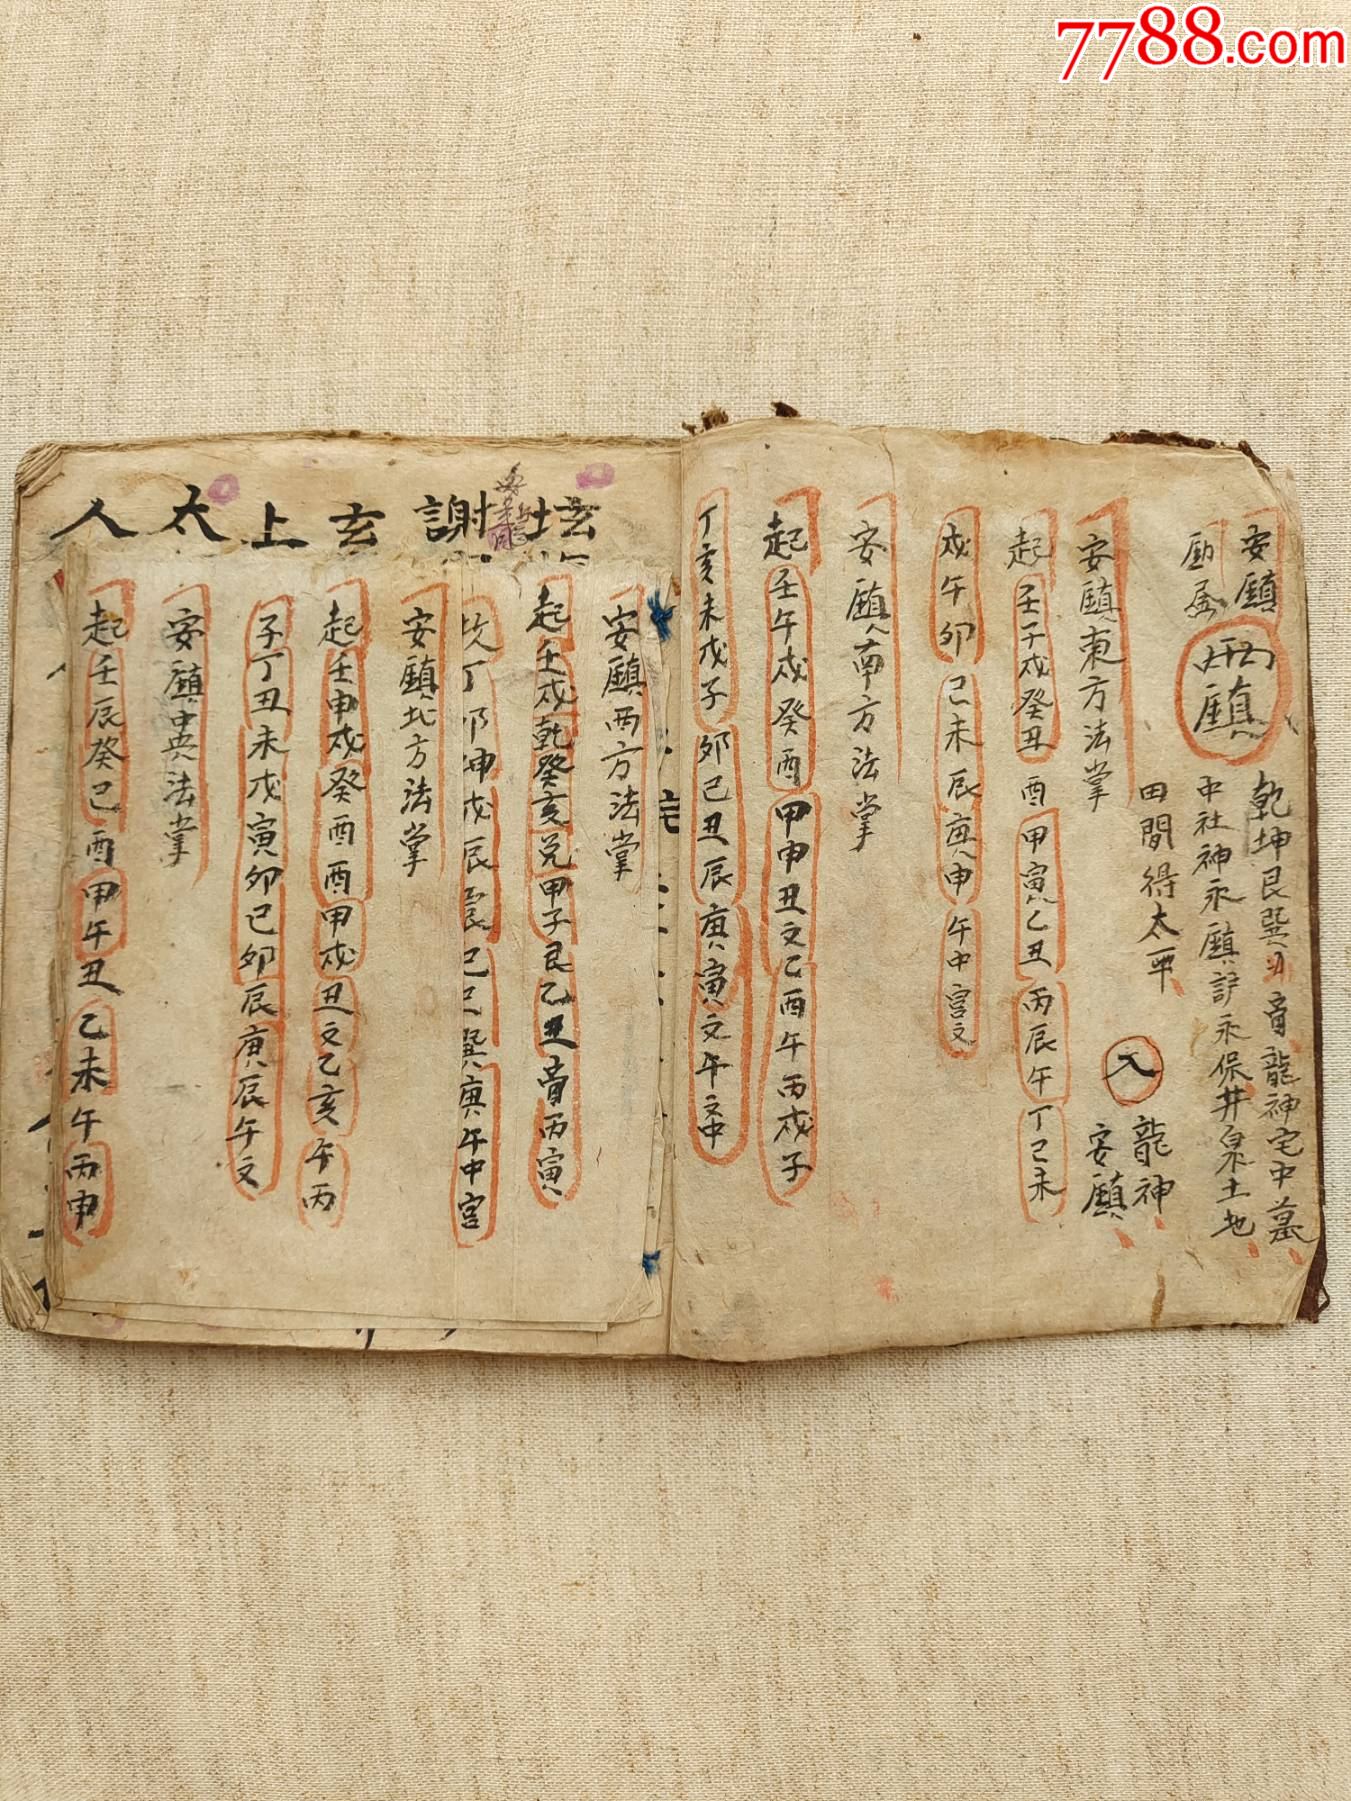 7788.com
安鎮
西鎮
乾坤艮巽
龍神宅中墓
中社神永鎮
永保井泉土地
田間得太平
入
龍神
安鎮
安鎮東方法掌
起壬子戌癸丑酉甲寅乙丑丙辰午丁巳未
戌午卯己未辰庚申午中宫文
安鎮南方法掌
起壬午戌癸酉甲申丑文乙酉午丙戌子
丁亥未戊子卯己丑辰庚寅文午中
安鎮西方法掌
起壬戌乾癸亥兑甲子艮乙丑丙寅
坎丁卯坤戊辰震己巳巽庚午中宫
安鎮北方法掌
起壬申戌癸酉酉甲戌丑文乙亥午丙
子丁丑未戊寅卯己卯辰庚辰午文
安鎮中央法掌
起壬辰癸巳酉甲午丑乙未午丙申
壇
謝
玄
上
大
人